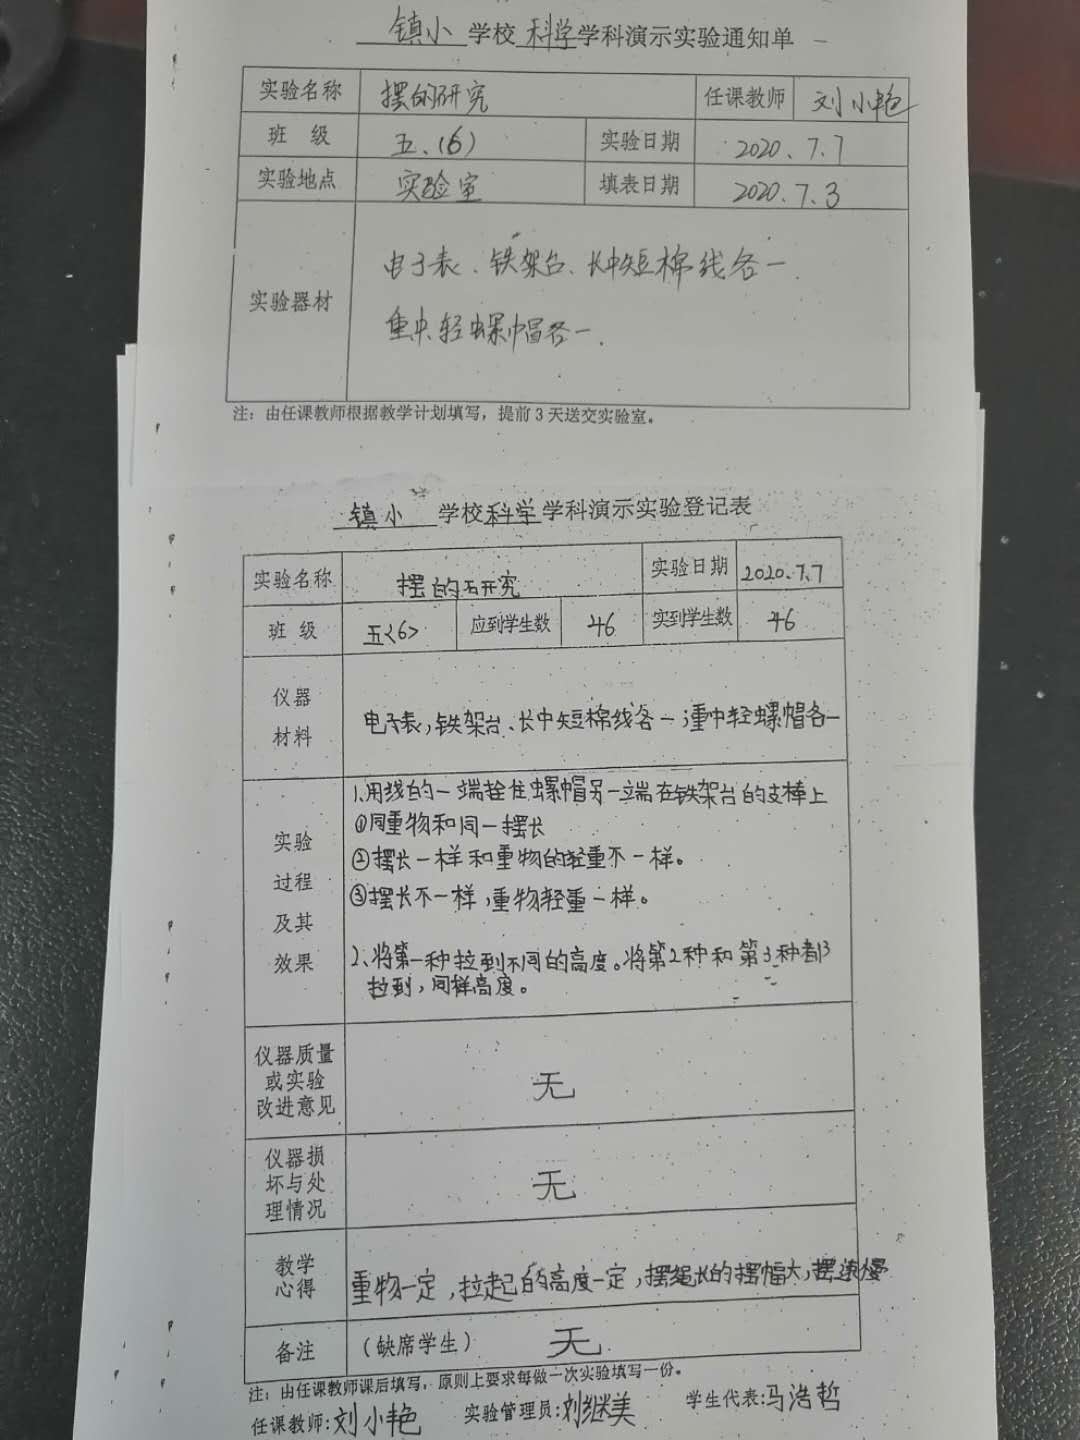 镇小 学校 科学 学科演示实验通知单
实验名称 摆的研究 任课教师 刘小艳
班 级 五.(6) 实验日期 2020.7.7
实验地点 实验室 填表日期 2020.7.3
实验器材
电子表、铁架台、长中短棉线各一
重中轻螺帽各一.
注：由任课教师根据教学计划填写，提前3天送交实验室。
镇小 学校科学学科演示实验登记表
实验名称 摆的研究 实验日期 2020.7.7
班 级 五<6> 应到学生数 46 实到学生数 46
仪器
材料
电子表,铁架台、长中短棉线各一;重中轻螺帽各一
实验
过程
及其
效果
1.用线的一端拴住螺帽另一端在铁架台的支棒上
①同重物和同一摆长
②摆长一样和重物的轻重不一样。
③摆长不一样,重物轻重一样。
2.将第一种拉到不同的高度。将第2种和第3种都
拉到,同样高度。
仪器质量
或实验
改进意见
无
仪器损
坏与处
理情况
无
教学
心得
重物一定,拉起的高度一定,摆绳长的摆幅大,摆速慢
备注 （缺席学生） 无
注：由任课教师课后填写，原则上要求每做一次实验填写一份。
任课教师:刘小艳 实验管理员:刘继美 学生代表:马浩哲